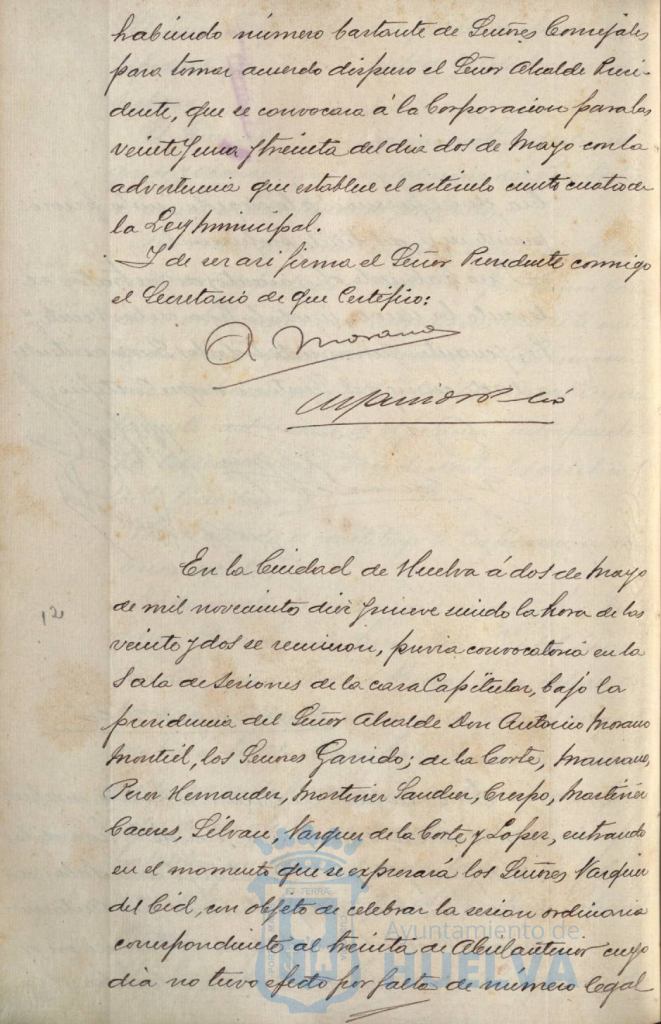 habiendo número bastante de Señores Concejales
para tomar acuerdo dispuso el Señor Alcalde Presi-
dente, que se convocara á la Corporacion para las
veinte y una y treinta del dia dos de Mayo con la
advertencia que establece el artículo ciento cuatro de
la Ley municipal.
Y de ser asi firma el Señor Presidente conmigo
el Secretario de que Certifico:
A Morano
En la Ciudad de Huelva á dos de Mayo
12
de mil novecientos diez y nueve siendo la hora de las
veinte y dos se reunieron, previa convocatoria en la
Sala de Sesiones de la casa Capitular, bajo la
presidencia del Señor Alcalde Don Antonio Morano
Montiel, los Señores Garrido; de la Corte, Manzano,
Perez Hernandez, Martinez Sanchez, Crespo, Martinez
Caceres, Sélvan, Vazquez de la Corte y Lopez, entrando
en el momento que se expresará los Señores Vazquez
del Cid, con objeto de celebrar la sesion ordinaria
correspondiente al treinta de Abril anterior cuyo
dia no tuvo efecto por falta de número legal
Ayuntamiento de
HUELVA